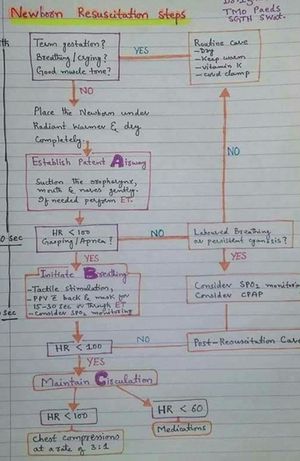 Newborn Resuscitation Steps
TMO Paeds
SGTH Swat.
Term gestation?
Breathing/crying?
Good muscle tone?
YES
Routine Care
- Dry
- Keep warm
- vitamin K
- cord clamp
NO
Place the Newborn under
Radiant Warmer & dry
Completely.
Establish Patent Airway
Suction the oropharynx,
mouth & nares gently.
If needed perform ET.
NO
HR < 100
Gasping/Apnea?
NO
Laboured Breathing
or persistent cyanosis?
sec
YES
YES
Initiate Breathing
- Tactile stimulation,
- PPV c̄ back & mask for
15-30 sec or through ET
- Consider SPO2 monitoring
Consider SPO2 monitoring
Consider CPAP
sec
HR < 100
NO
Post-Resuscitation Care
YES
Maintain Circulation
HR < 100
HR < 60
Chest compressions
at a rate of 3:1
Medications